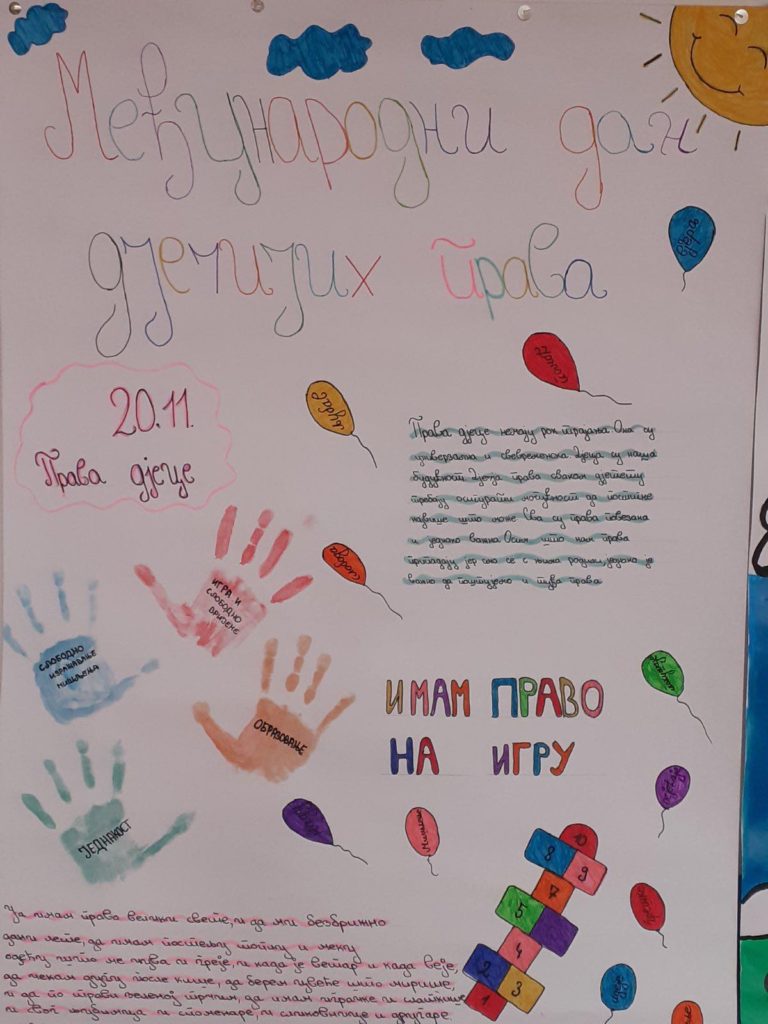 Међународни дан
дјечијих права
вјера
20.11.
Права дјеце
љубав
Права дјеце немају рок трајања. Она су
универзална и свевременска. Дјеца су наша
будућност. Дјечја права сваком дјетету
требају осигурати могућност да постигне
највише што може. Сва су права повезана
и једнако важна. Осим што нам права
припадају јер смо се с њима родили, једнако је
важно да поштујемо и туђа права.
слобода
ИГРА И
СЛОБОДНО
ВРИЈЕМЕ
СЛОБОДНО
ИЗРАЖАВАЊЕ
МИШЉЕЊА
ОБРАЗОВАЊЕ
ЈЕДНАКОСТ
ИМАМ ПРАВО
НА ИГРУ
10
8
9
7
5
4
2
3
1
Ја имам право већини свете, и да ми безбрижно
дани лете, да имам постељу топлу и меку
одјећу што ме чува и грије, и када је ветар и када веје,
да чекам дугу после кише, да берем цвеће што мирише,
и да по трави зеленој трчим, да имам играчке и слаткише
и свог љубимца и споменаре, и сликовнице и другаре.